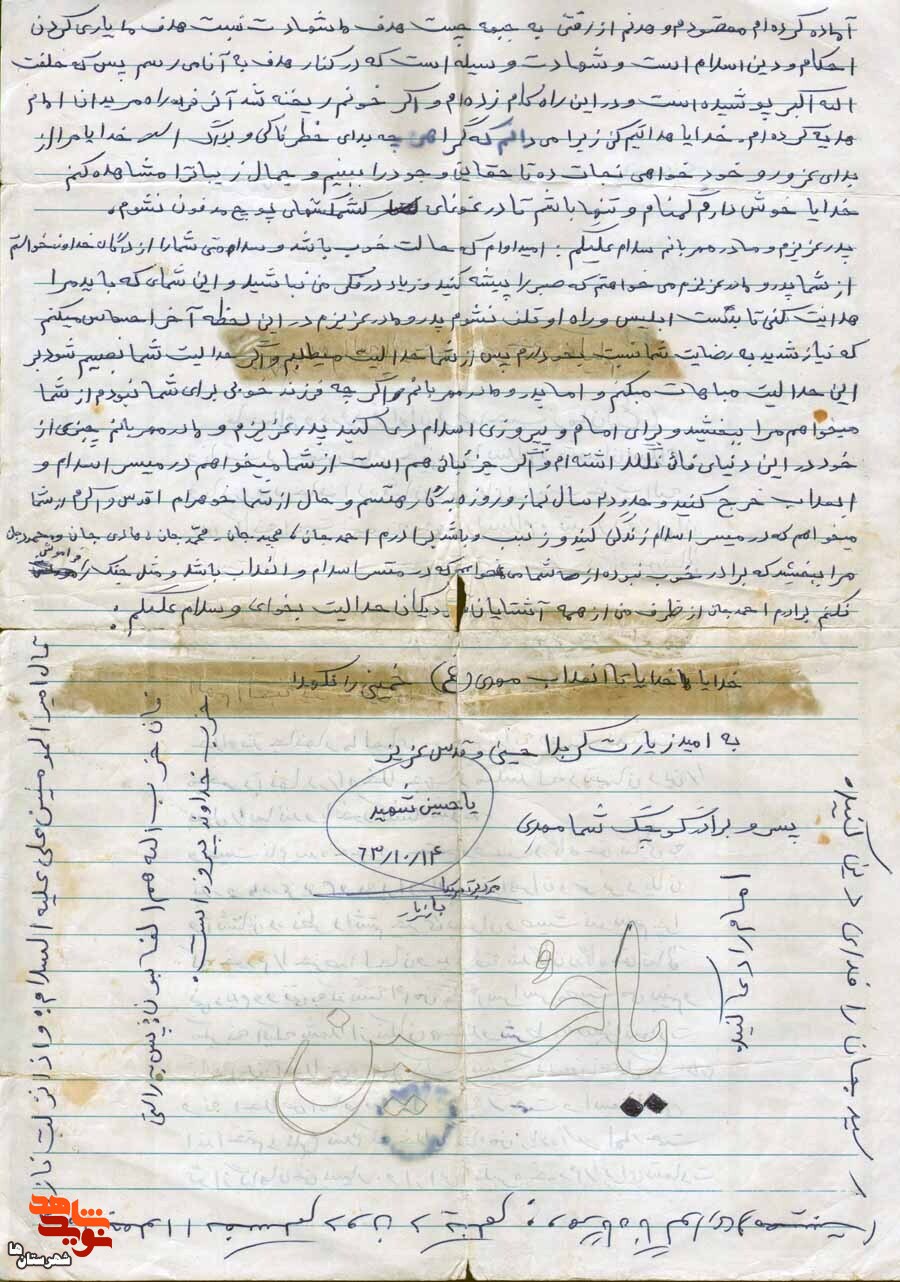 آماده کرده‌ام مقصودم و هدفم از رفتن به جبهه چیست هدف ما شهادت نیست هدف ما یاری کردن
احکام و دین اسلام است و شهادت وسیله است که در کنار هدف به آن می رسم پس که خلعت
الله اکبر پوشیده است و در این راه گام زده‌ام و اگر خونم ریخته شد آن فرا راه مریدان امام
هدیه کرده‌ام. خدایا هدایتم کن زیرا می دانم که گمراهی چه بدای خطرناکی و بزرگ است خدایا مرا از
بدای غرور و خود خواهی نجات ده تا حقایق وجود را ببینم و جمال زیبا ترا مشاهده کنم
خدایا خوش دارم گمنام و تنها باشم تا در غوغای کشمکشهای پوچ مدفون نشوم.
پدر عزیزم و مادر مهربانم سلام علیکم: امیدوارم که حالت خوب باشد و سلامتی شما را از درگاه خداوند خواستارم
از شما پدر و مادر عزیزم می خواهم که صبر را پیشه کنید و زیاد در فکر من نباشید و این شمای که باید مرا
هدایت کنی تا بدست ابلیس و راه او تلف نشوم پدر و مادر عزیزم در این لحظه آخر احساس میکنم
که نیاز شدید به رضایت شما نسبت بخود دارم پس از شما حدالیت میطلبم و اگر حدالیت شما نصیبم شود بر
این حدالیت مباهات میکنم و اما پدر و مادر مهربانم اگر چه فرزند خوبی برای شما نبودم از شما
میخواهم مرا ببخشید و برای امام و پیروزی اسلام دعا کنید پدر عزیزم و مادر مهربانم چیزی از
خود در این دنیای فانی نگذاشته‌ام و اگر جزئیان هم است از شما میخواهم در مسیر اسلام و
انقلاب خرج کنید و حدود ۲ سال نماز و روزه بدهکار هستم و حال از شما خواهرام اقدس و اکرم از شما
میخواهم که در مسیر اسلام زندگی کنید و زینب وار باشد برادرم احمد جان، مجید جان، محمد جان، هادی جان و
مرا ببخشید که برادر خوب نبوده از شما می خواهم که در مسیر اسلام و انقلاب باشد و مثل جنگ را فراموش
نکنم برادرم احمد جان از طرف من از همه آشنایان نزدیکان حدالیت بخوای و سلام علیکم.
خدایا خدایا تا انقلاب مهدی (عج) خمینی را نگهدار
به امید زیارت کربلا حسینی و قدس عزیز
پسر و برادر کوچک شما مهدی
یا حسین شهید
۶۳/۱۰/۱۴
مرگ بر آمریکا
یا حسین
امام را دعا کنید
سید جان را فدای دین کنید
قال امیر المومنین علی علیه السلام
فان حزب الله هم الغالبون پس براستی
حزب خداوند پیروز است.
نوید شاهد
شهرستان ها